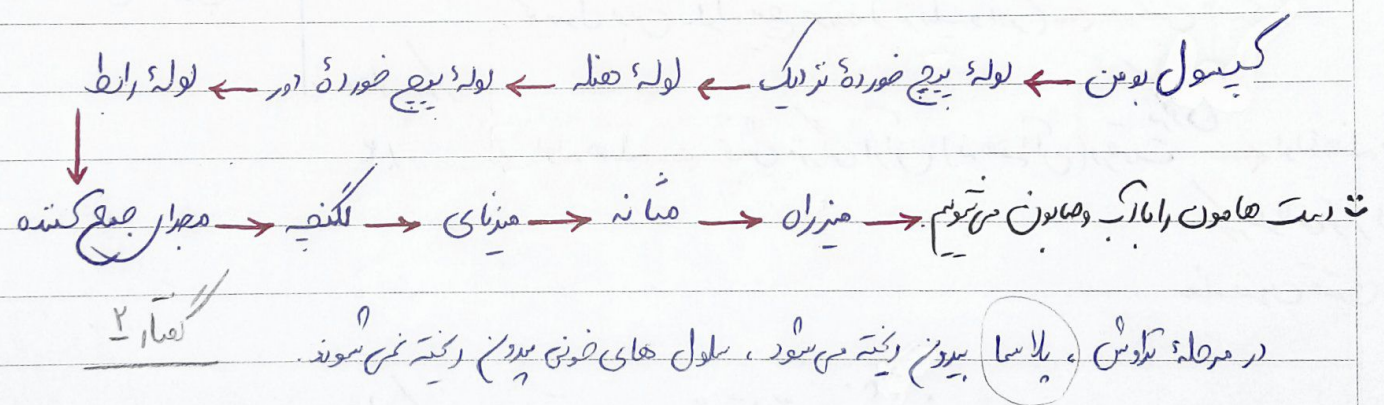 کپسول بومن ← لولهٔ پیچ خوردهٔ نزدیک ← لولهٔ هنله ← لولهٔ پیچ خوردهٔ دور ← لولهٔ رابط
↓
مجرای جمع کننده → لگنچه → میزنای → مثانه → میزراه → دست هامون را با آب و صابون می‌شوییم :)
در مرحلهٔ تراوش، پلاسما بیرون ریخته می‌شود، سلول های خونی بیرون ریخته نمی‌شوند.
گفتار ۲